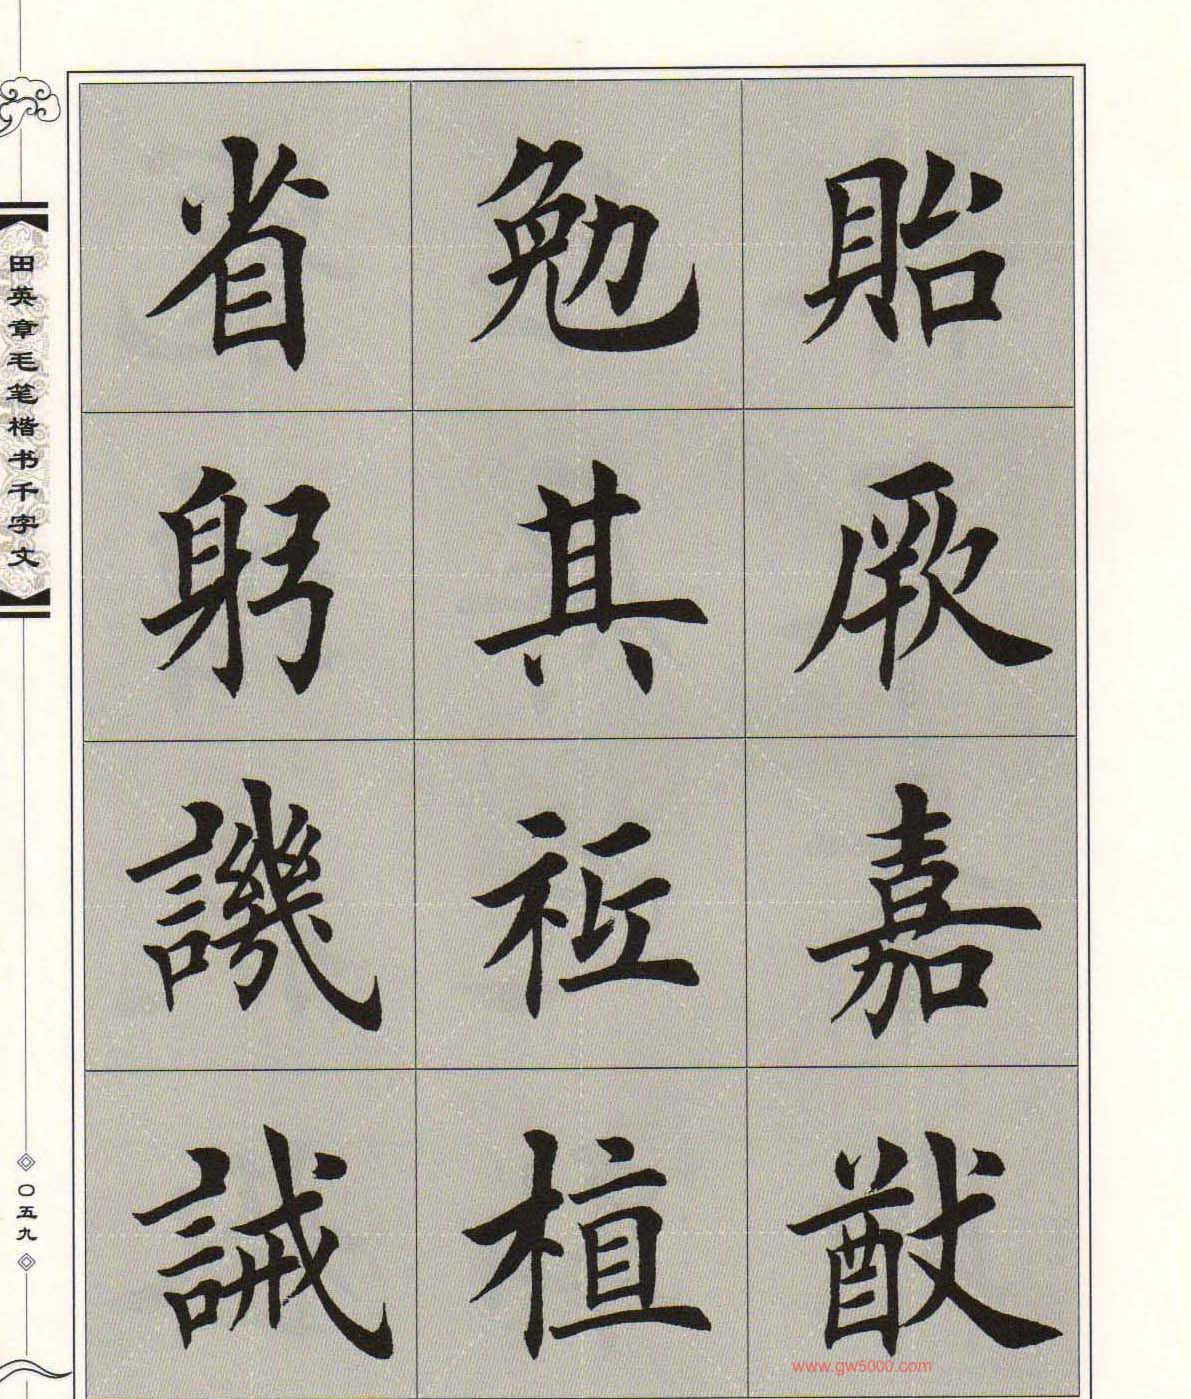 貽厥嘉猷
勉其祗植
省躬譏誡
田英章毛笔楷书千字文
〇五九
www.gw5000.com